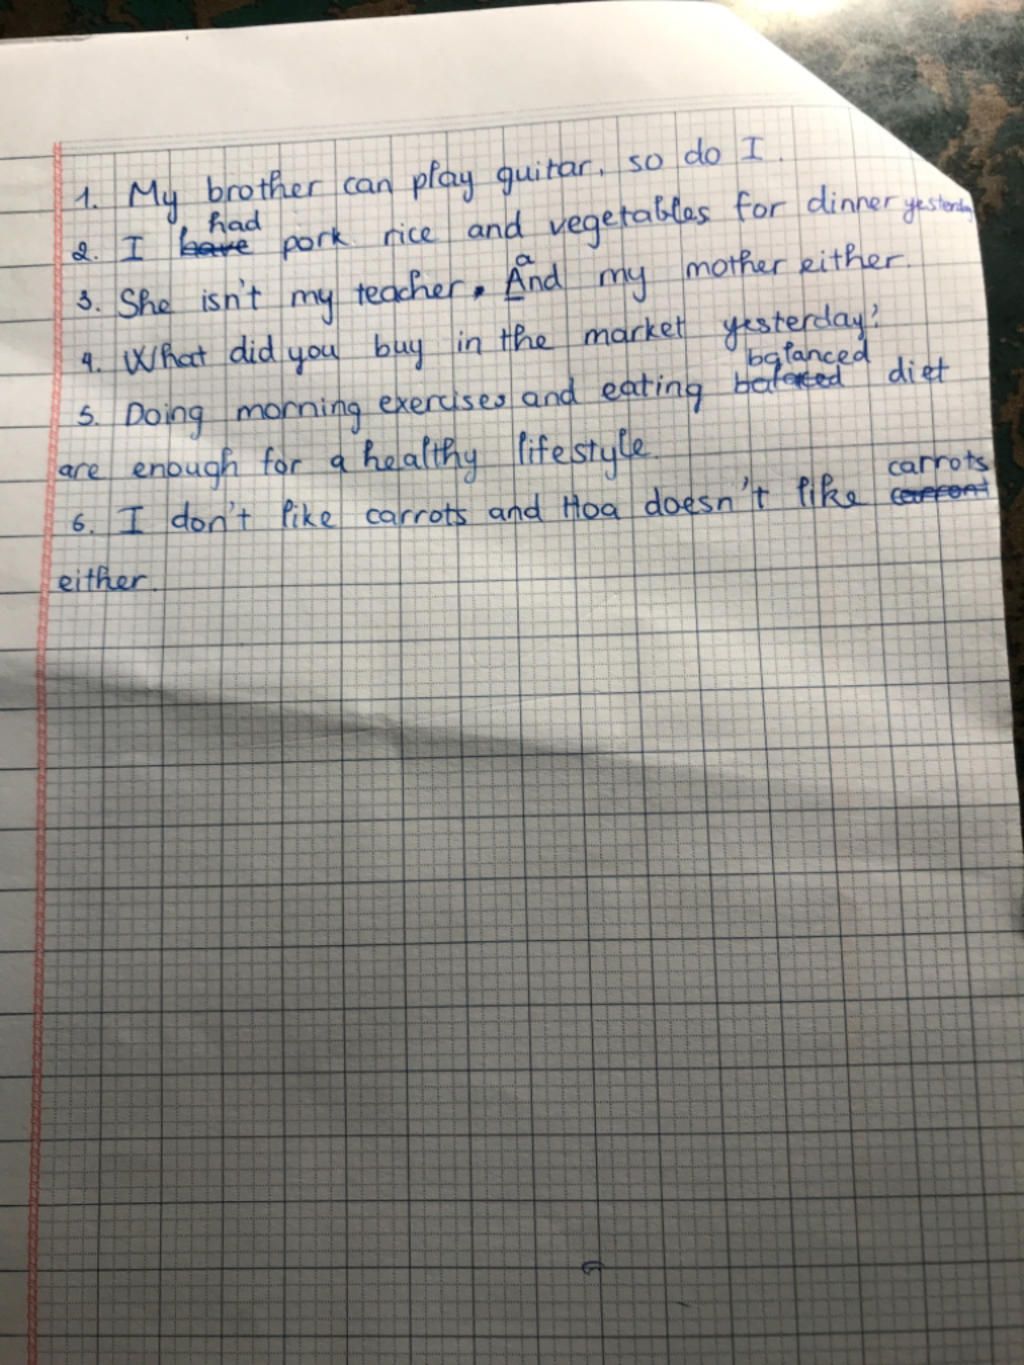 1. My brother can play guitar, so do I.
2. I have had pork rice and vegetables for dinner yesterday
3. She isn't my teacher. And a my mother either.
4. What did you buy in the market yesterday?
5. Doing morning exercises and eating balanced diet
are enough for a healthy lifestyle.
6. I don't like carrots and Hoa doesn't like carront carrots
either.